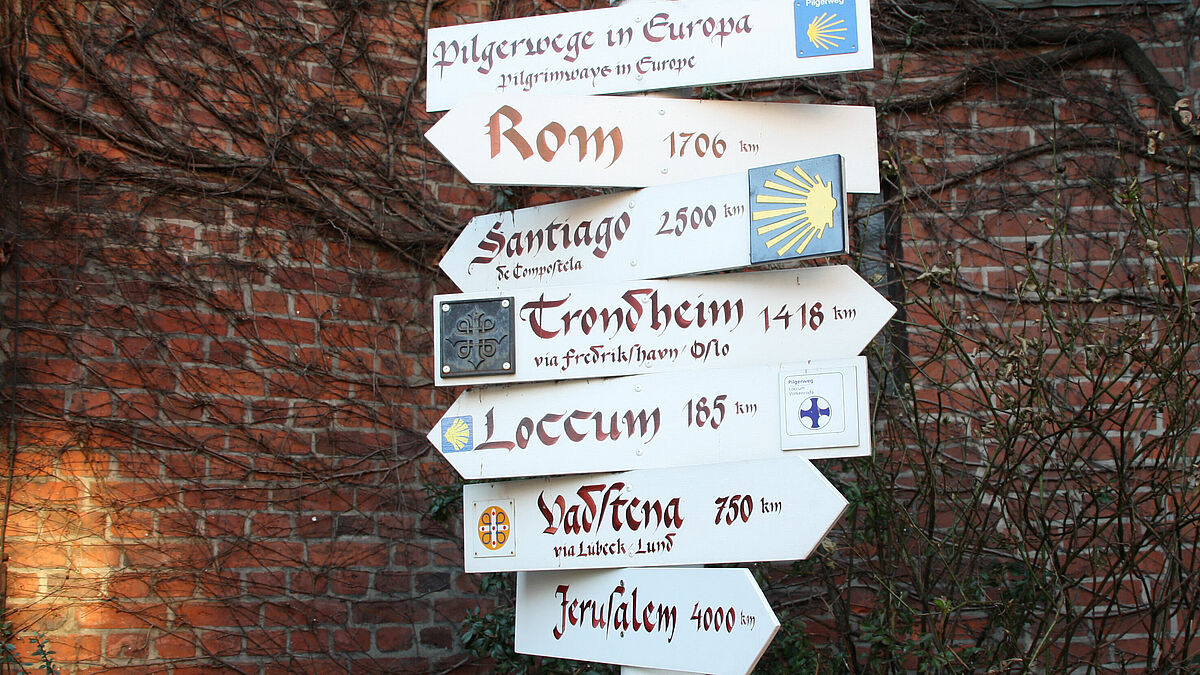 Pilgerwege in Europa
Pilgerweg
pilgrimways in Europe
Rom 1706 km
Santiago 2500 km
de Compostela
Trondheim 1418 km
via Fredrikshavn/Oslo
Pilgerweg
Loccum
Volkenroda
Loccum 185 km
Vadstena 750 km
via Lübeck/Lund
Jerusalem 4000 km